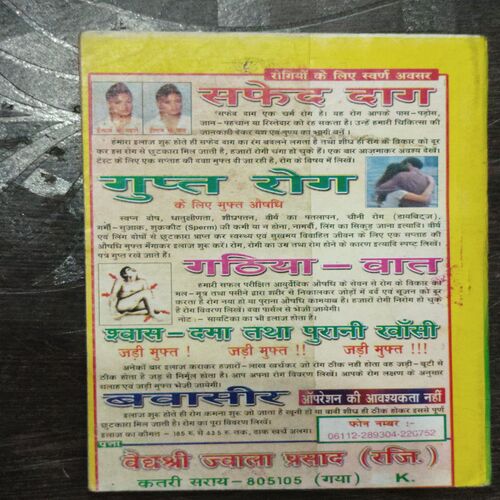 रोगियों के लिए स्वर्ण अवसर
सफेद दाग
इलाज के पहले
इलाज के बाद
सफेद दाग एक चर्म रोग है। यह रोग आपके पास-पड़ोस,
जान-पहचान या रिस्तेदार को रह सकता है। उन्हें हमारी चिकित्सा की
जानकारी देकर यश एवं पुण्य का भागी बनें।
हमारा इलाज शुरू होते ही सफेद दाग का रंग बदलने लगता है तथा शीघ्र ही रोग के विकार को दूर
कर इस रोग से छुटकारा मिल जाती है, हजारों रोगी चंगा हो चुके हैं। एक बार आजमाकर अवश्य देखें।
टेस्ट के लिए एक सप्ताह की दवा मुफ्त दी जा रही है, रोग के विषय में लिखें।
गुप्त रोग
के लिए मुफ्त औषधि
स्वप्न दोष, धातुक्षीणता, शीघ्रपतन, वीर्य का पतलापन, चीनी रोग (डायबिट्ज),
गर्मी-सुजाक, शुक्रकीट (Sperm) की कमी या न होना, नामर्दी, लिंग का सिकुड़ जाना इत्यादि। वीर्य
एवं लिंग दोषों से छुटकारा प्राप्त कर स्वस्थ्य एवं सुखमय विवाहित जीवन के लिए एक सप्ताह की
औषधि मुफ्त मँगाकर इलाज शुरू करें। रोग, रोगी का उम्र तथा रोग होने के कारण इत्यादि स्पष्ट लिखें।
पत्र गुप्त रखे जाते हैं।
गठिया - वात
हमारी सफल परीक्षित आयुर्वेदिक औषधि के सेवन से रोग के विकार को
मल-मूत्र तथा पसीने द्वारा शरीर से निकालकर जोड़ों में दर्द एवं सूजन को दूर
करता है रोग नया हो या पुराना औषधि कामयाब है। हजारों रोगी निरोग हो चुके
हैं रोग विवरण लिखें। दवा पार्सल से भेजी जायेगी।
नोट :- सायटिका का भी इलाज होता है।
श्वास - दमा तथा पुरानी खाँसी
जड़ी मुफ्त ! जड़ी मुफ्त !! जड़ी मुफ्त !!!
अनेकों बार इलाज कराकर हजारों-लाख खर्चकर जो रोग ठीक नहीं होता वह जड़ी-बूटी से
ठीक होता है जड़ से निर्मूल होता है। आप अपना रोग विवरण लिखें। आपके रोग लक्षण के अनुसार
सलाह एवं जड़ी मुफ्त भेजी जायेगी।
बवासीर ऑपरेशन की आवश्यकता नहीं
इलाज शुरू होते ही रोग कमना शुरू जो जाता है खूनी हो या बादी शीघ्र ही ठीक होकर इससे पूर्ण
छुटकारा मिल जाती है। रोग का पूरा विवरण लिखें।
इलाज का कीमत - 185 रु. से 435 रु. तक, डाक खर्च अलग।
फोन नम्बर :-
06112-289304-220752
पता
वैद्यश्री ज्वाला प्रसाद (रजि.)
कतरी सराय - 805105 (गया) K.